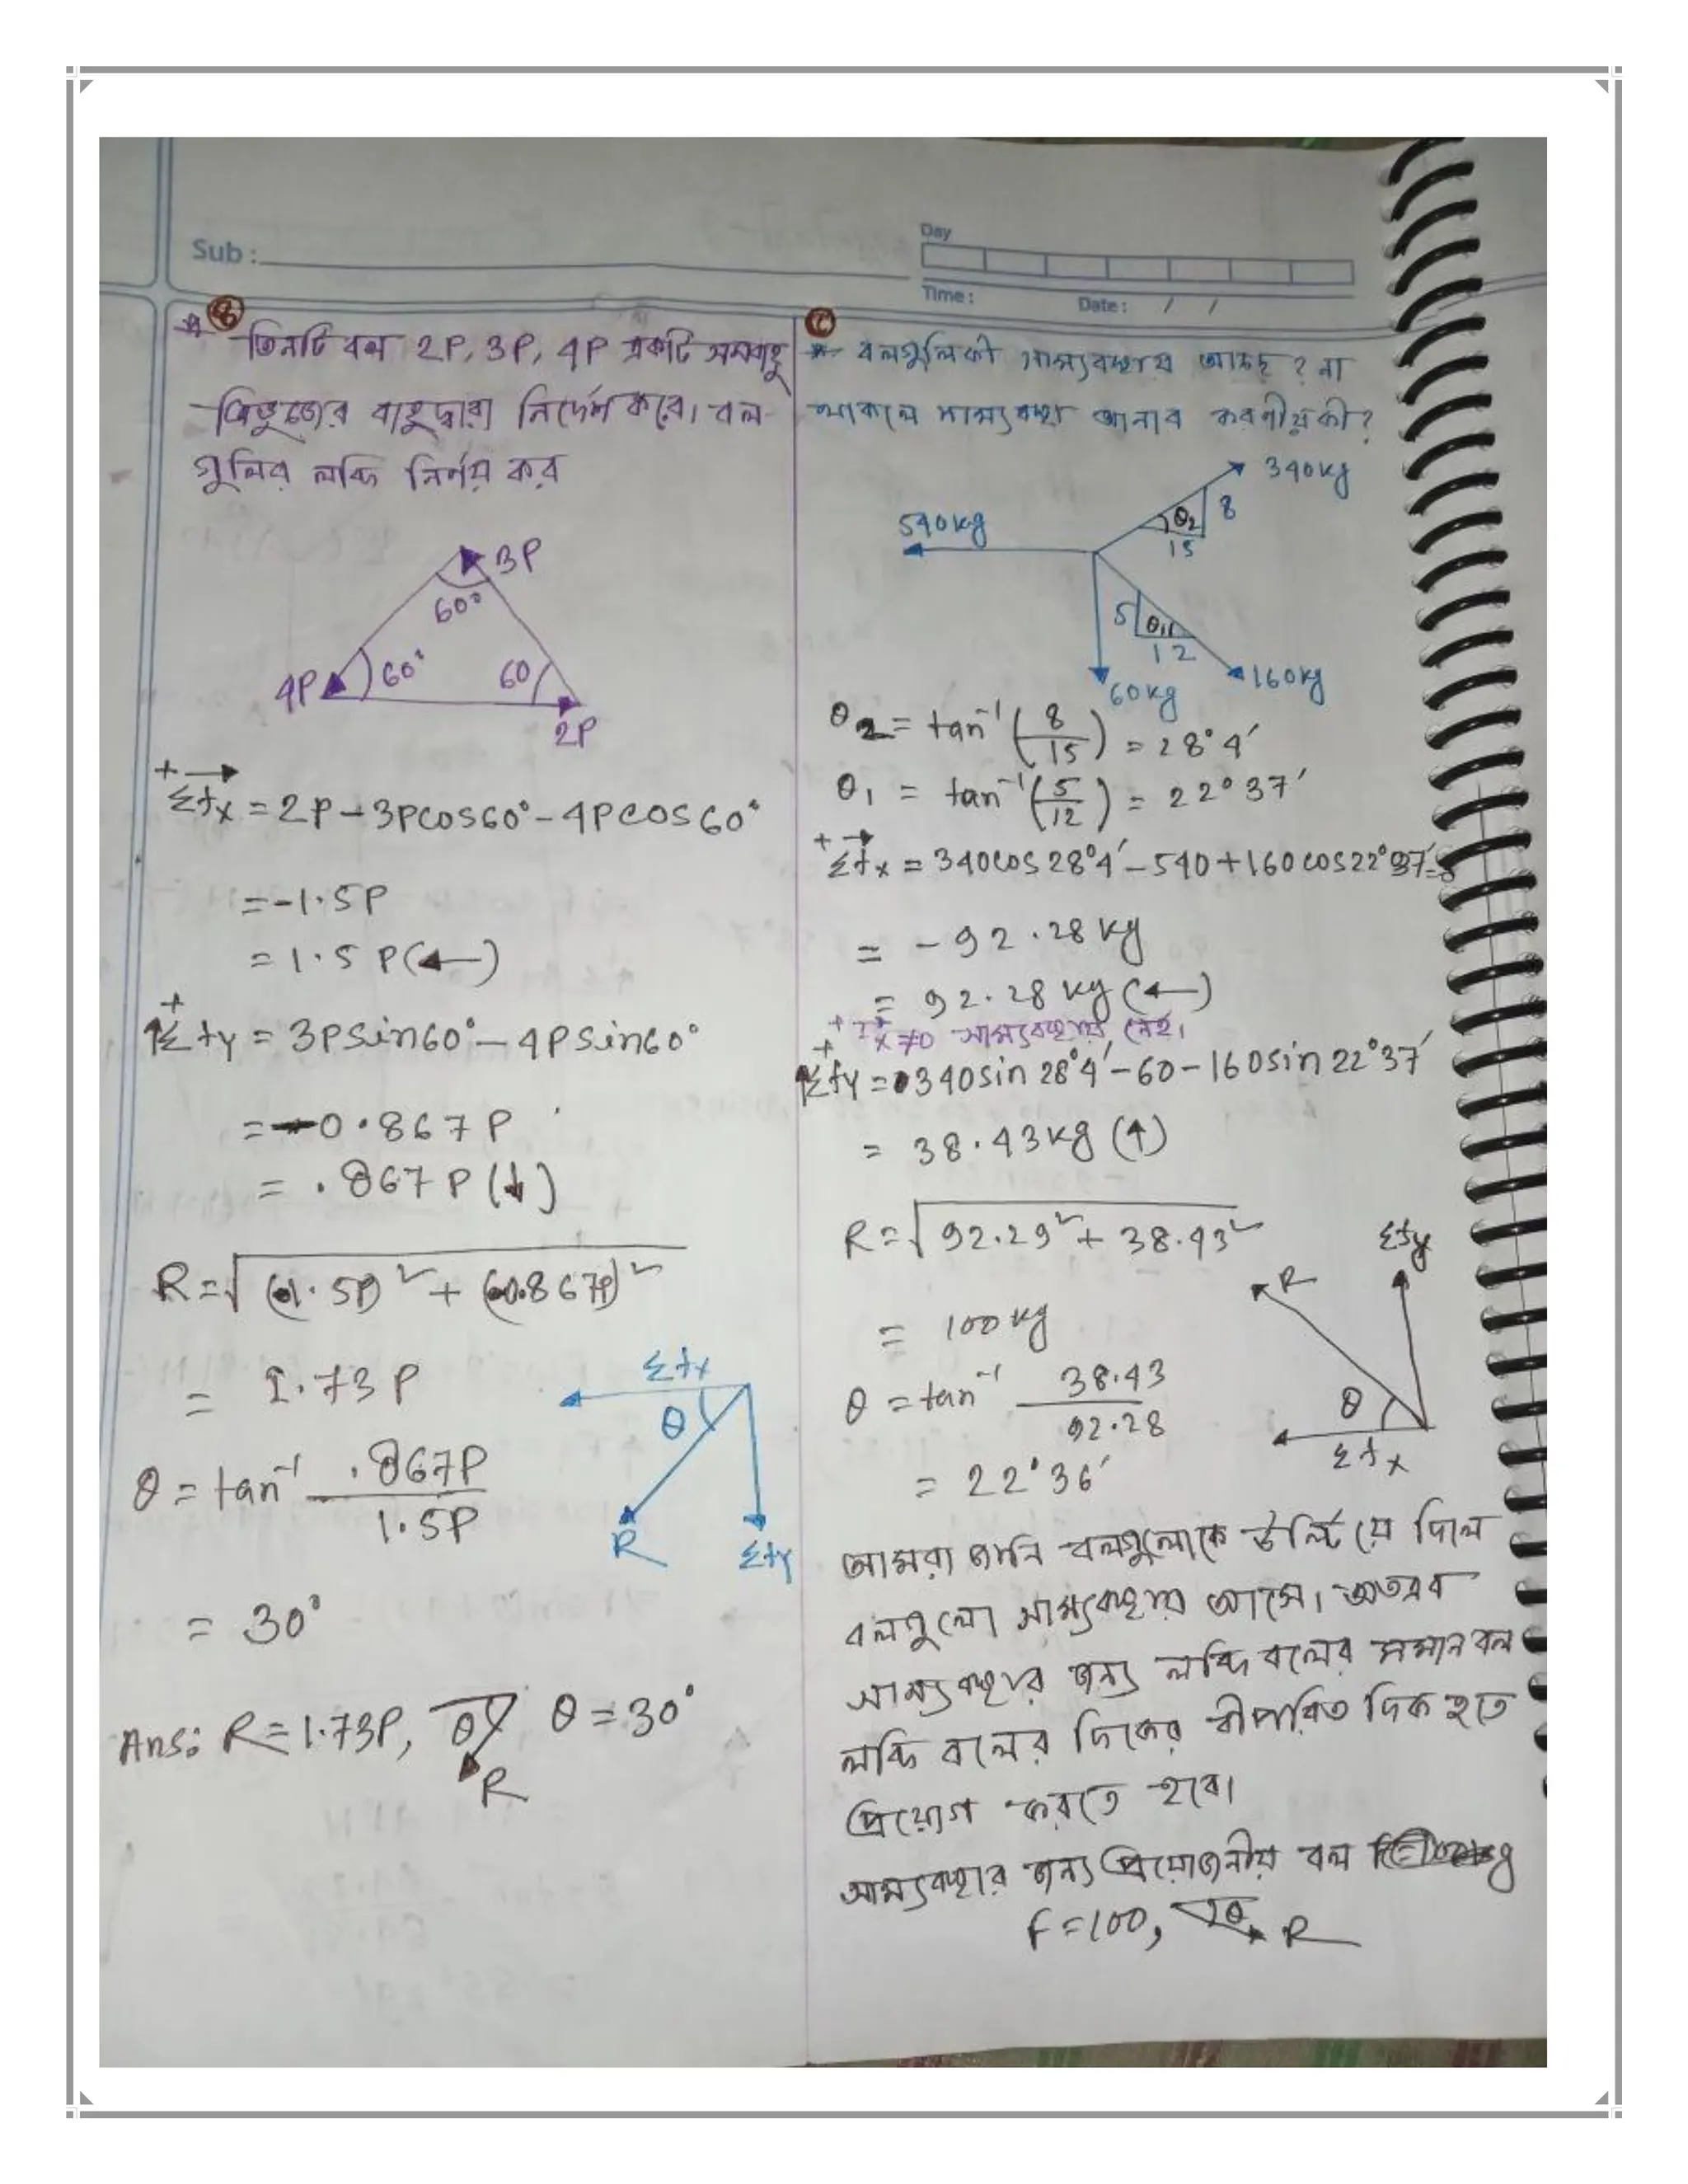 Sub :
Day
Time :
Date : / /
B
* তিনটি বল 2P, 3P, 4P একটি সমবাহু
ত্রিভুজের বাহুদ্বারা নির্দেশ করে। বল-
গুলির লব্ধি নির্ণয় কর
3P
60°
4P
60°
60
2P
+→
Σfx = 2P - 3Pcos60° - 4Pcos60°
= -1.5P
= 1.5 P(←)
+
↑Σfy = 3Psin60° - 4Psin60°
= -0.867P
= .867P (↓)
R = √(1.5P)² + (0.867P)²
= 1.73P
θ = tan⁻¹ .867P / 1.5P
= 30°
Σfx
θ
R
Σfy
Ans: R = 1.73P, θ θ = 30°
R
C
* বলগুলি কী সাম্যবস্থায় আছে? না
থাকলে সাম্যবস্থা আনার করণীয় কী?
340kg
540kg
θ2
8
15
5
θ1
12
60kg
160kg
θ2 = tan⁻¹(8/15) = 28°4′
θ1 = tan⁻¹(5/12) = 22°37′
+→
Σfx = 340cos28°4′ - 540 + 160cos22°37′
= -92.28 kg
= 92.28 kg (←)
x ≠ 0 সাম্যবস্থায় নেই।
+
↑Σfy = 340sin28°4′ - 60 - 160sin22°37′
= 38.43kg (↑)
R = √92.29² + 38.43²
= 100 kg
θ = tan⁻¹ 38.43 / 92.28
= 22°36′
Σfy
R
θ
Σfx
আমরা জানি বলগুলোকে উল্টিয়ে দিলে
বলগুলো সাম্যবস্থায় আসে। অতএব
সাম্যবস্থার জন্য লব্ধি বলের সমান বল
লব্ধি বলের দিকের বীপরিত দিক হতে
প্রয়োগ করতে হবে।
সাম্যবস্থার জন্য প্রয়োজনীয় বল
F = 100, θ R